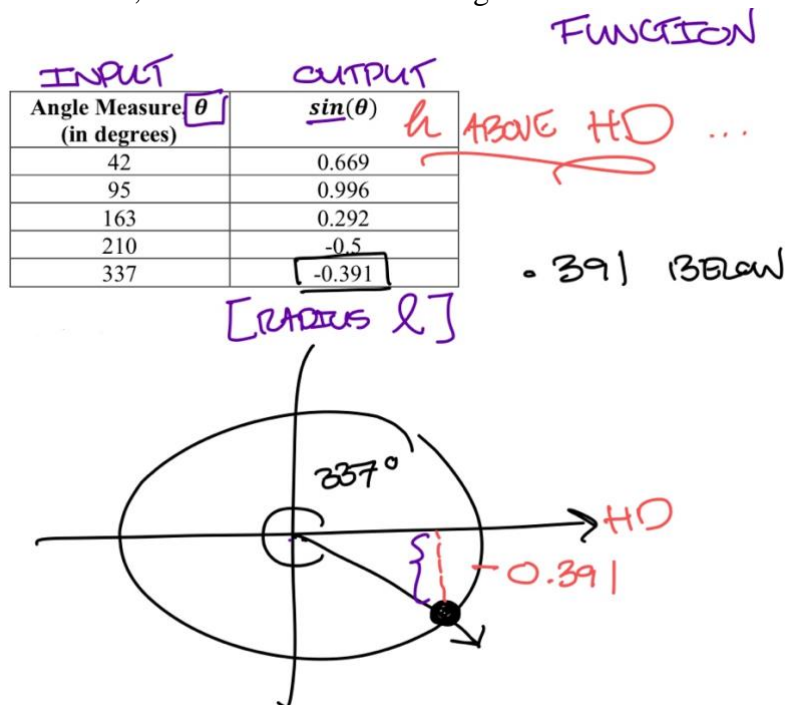 FUNCTION
INPUT OUTPUT
Angle Measure, θ (in degrees) sin(θ)
h ABOVE HD ...
42 0.669
95 0.996
163 0.292
210 -0.5
337 -0.391
.391 BELOW
[RADIUS l]
337°
HD
-0.391